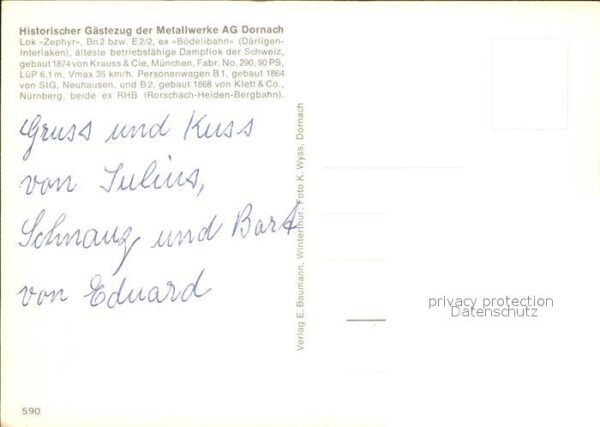 Historischer Gästezug der Metallwerke AG Dornach
Lok «Zephyr», Bn2 bzw. E2/2, ex «Bödelibahn» (Därligen-
Interlaken), älteste betriebsfähige Dampflok der Schweiz,
gebaut 1874 von Krauss & Cie, München, Fabr. No. 290, 90 PS,
LüP 6,1 m, Vmax 35 km/h. Personenwagen B1, gebaut 1864
von SIG, Neuhausen, und B2, gebaut 1868 von Klett & Co.,
Nürnberg, beide ex RHB (Rorschach-Heiden-Bergbahn).
Gruss und Kuss
von Julius,
Schnauz und Bart
von Eduard
Verlag E. Baumann, Winterthur, Foto K. Wyss, Dornach
privacy protection
Datenschutz
590